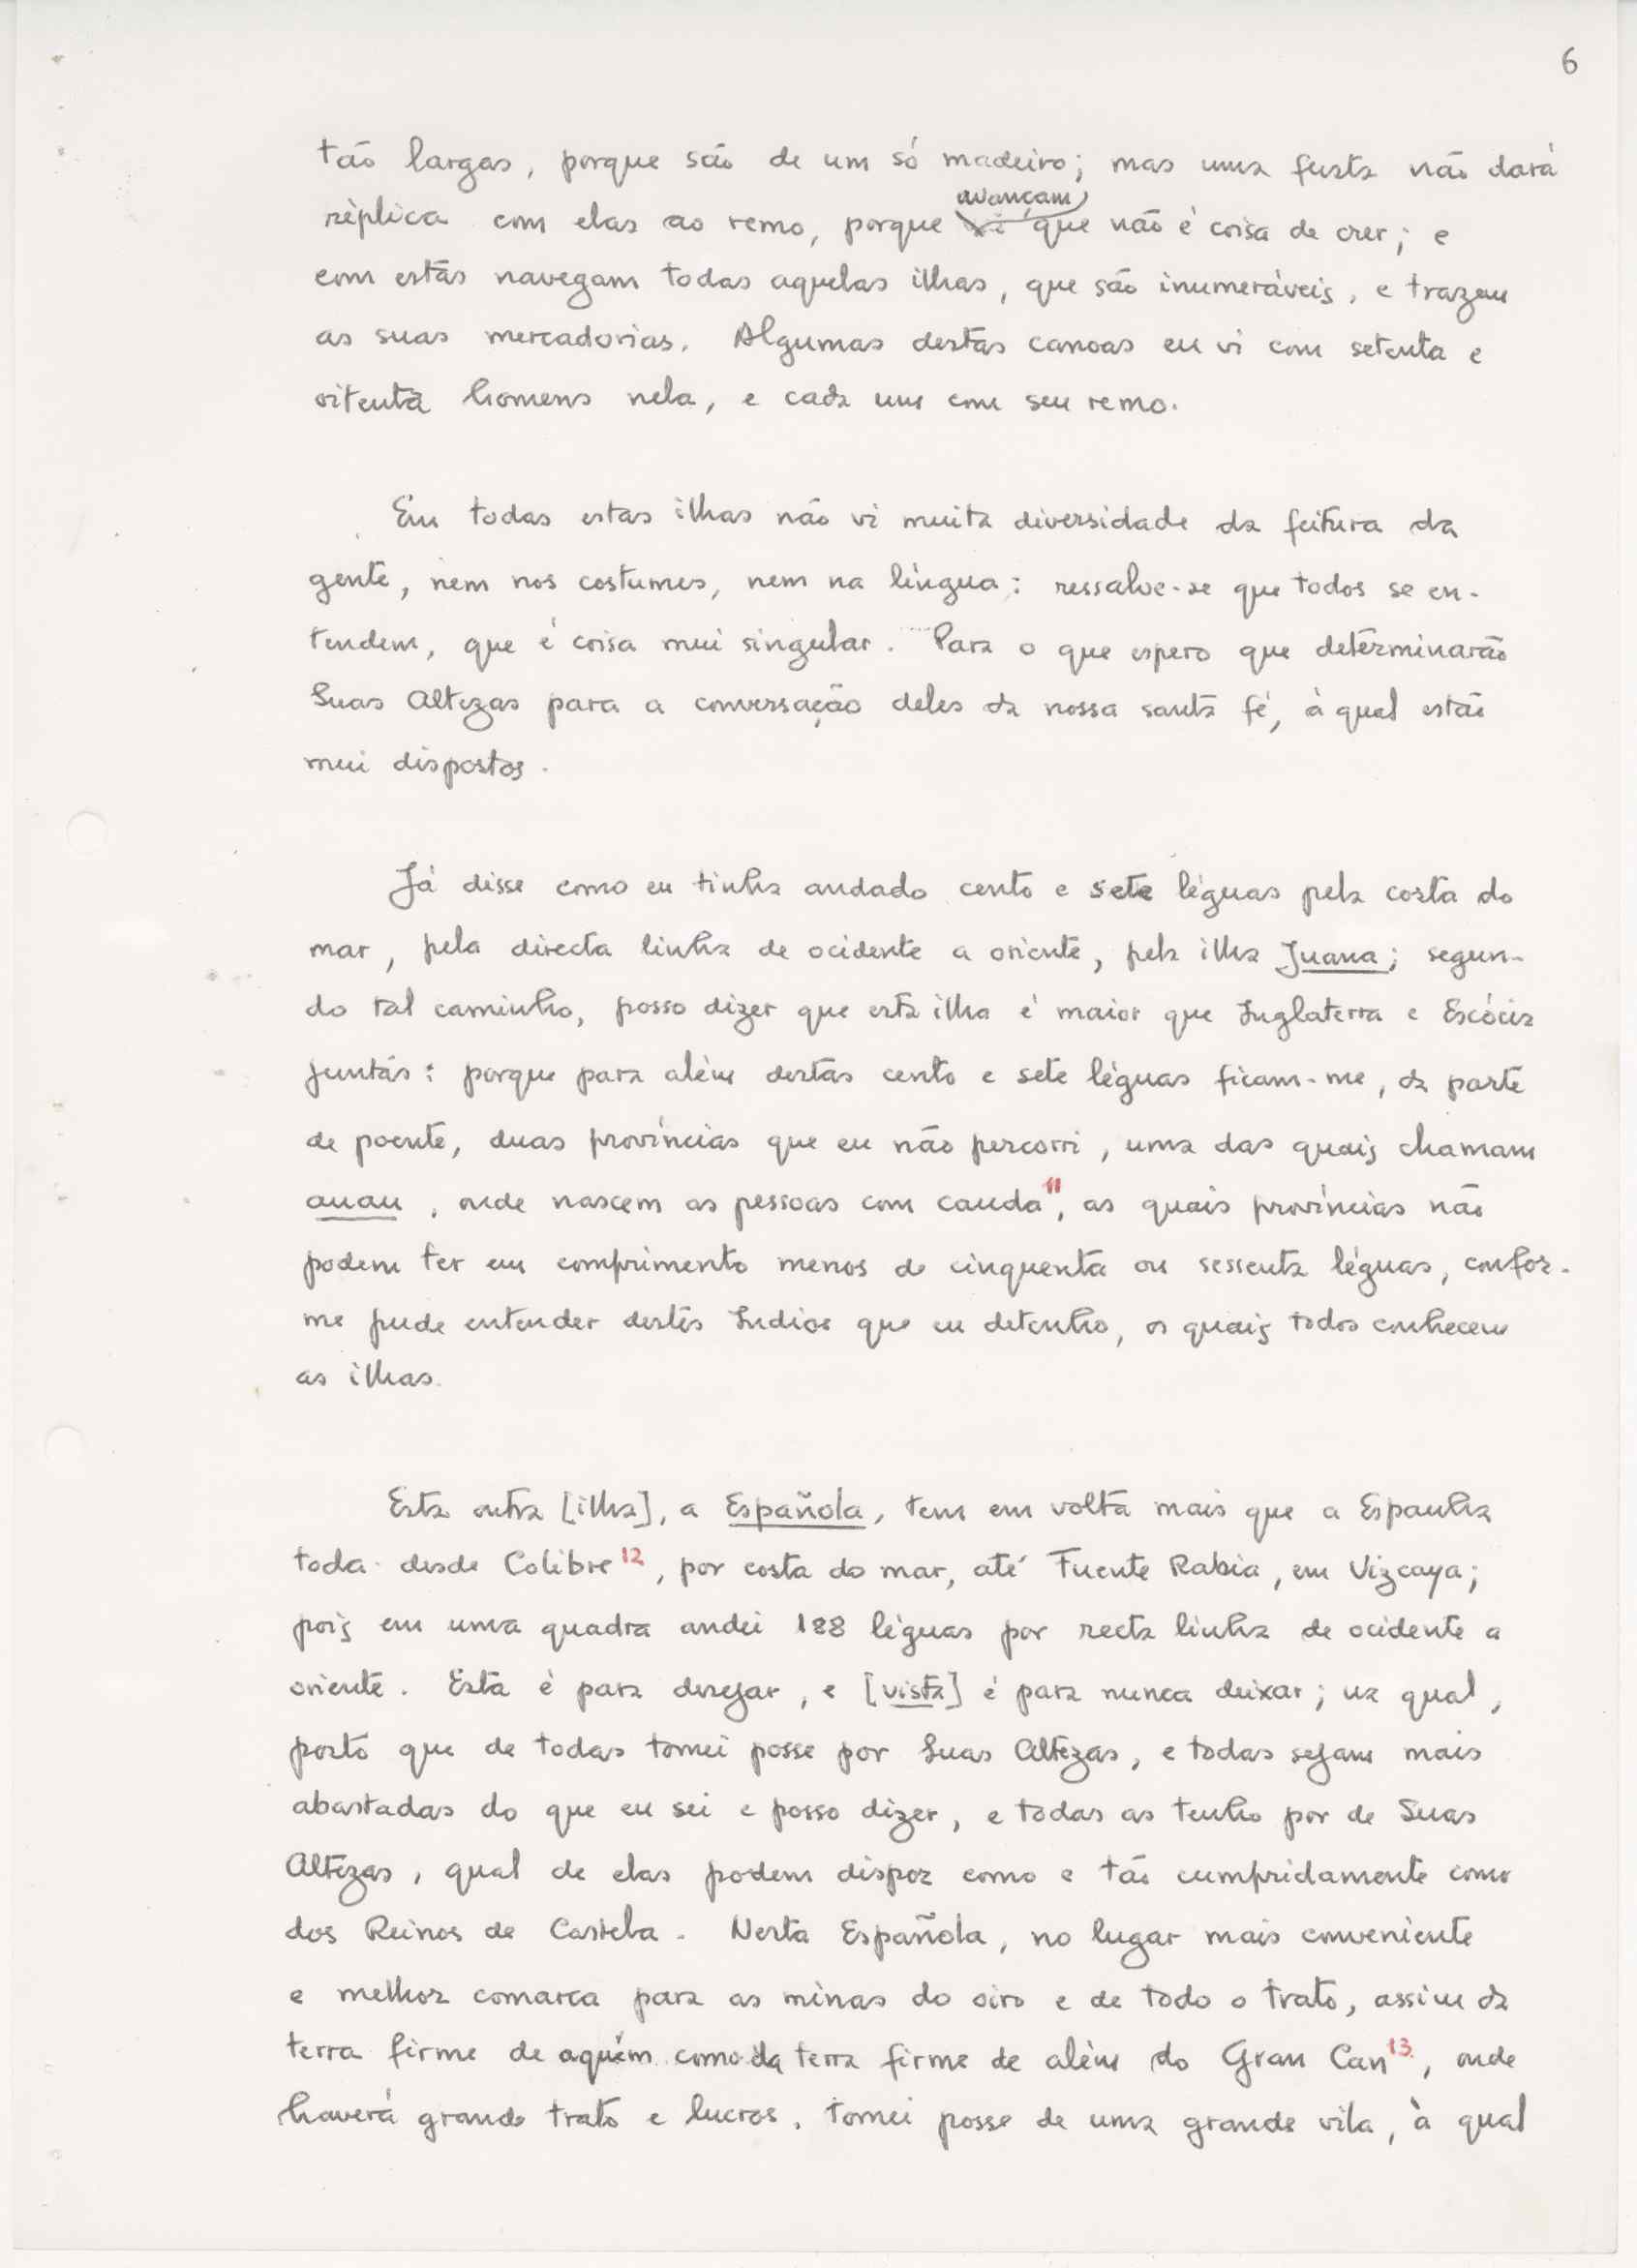 6
tão largas, porque são de um só madeiro; mas uma fusta não dará
avançam
réplica com elas ao remo, porque que não é coisa de crer; e
com estas navegam todas aquelas ilhas, que são inumeráveis, e trazem
as suas mercadorias. Algumas destas canoas eu vi com setenta e
oitenta homens nela, e cada um com seu remo.
Em todas estas ilhas não vi muita diversidade da feitura da
gente, nem nos costumes, nem na língua: ressalve-se que todos se en-
tendem, que é coisa mui singular. Para o que espero que determinarão
Suas Altezas para a conversação deles da nossa santa fé, à qual estão
mui dispostos.
Já disse como eu tinha andado cento e sete léguas pela costa do
mar, pela directa linha de ocidente a oriente, pela ilha Juana; segun-
do tal caminho, posso dizer que esta ilha é maior que Inglaterra e Escócia
juntas: porque para além destas cento e sete léguas ficam-me, da parte
de poente, duas províncias que eu não percorri, uma das quais chamam
auau, onde nascem as pessoas com cauda 11, as quais províncias não
podem ter em comprimento menos de cinquenta ou sessenta léguas, confor-
me pude entender destes Indios que eu detenho, os quais todos conhecem
as ilhas.
Esta outra [ilha], a Española, tem em volta mais que a Espanha
toda desde Colibre 12, por costa do mar, até Fuente Rabia, em Vizcaya;
pois em uma quadra andei 188 léguas por recta linha de ocidente a
oriente. Esta é para desejar, e [vista] é para nunca deixar; na qual,
posto que de todas tomei posse por Suas Altezas, e todas sejam mais
abastadas do que eu sei e posso dizer, e todas as tenho por de Suas
Altezas, qual de elas podem dispor como e tão cumpridamente como
dos Reinos de Castela. Nesta Española, no lugar mais conveniente
e melhor comarca para as minas do oiro e de todo o trato, assim da
terra firme de aquém como da terra firme de além do Gran Can 13, onde
haverá grande trato e lucros, tomei posse de uma grande vila, à qual